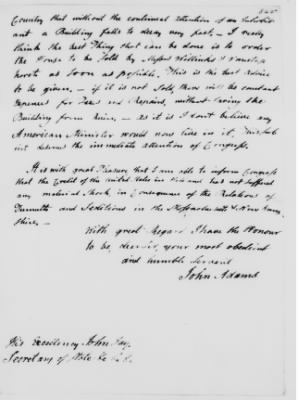 Country that without the continual attention of an Inhabit
ant a Building falls to decay very fast, – I really
think the best Thing that can be done is to order
the House to be Sold by Messrs Willinks &
as soon as possible, This is the best advice
to be given, – if it is not Sold, there will be constant
expences for Taxes and Repairs, without saving the
Building from Ruin, – as it is I don't believe any
American Minister would now live in it,
deserves the immediate attention of Congress.
It is with great Pleasure that I am able to inform Congress
that the Credit of the United States is and has not suffered
any material Shock, in Consequence of the Relations of
Tumults and Seditions in the Massachusetts & New Hamp
shire,
With great Regard I have the Honour
to be, dear Sir, your most obedient
and humble Servant
John Adams
His Excellency John Jay,
Secretary of State